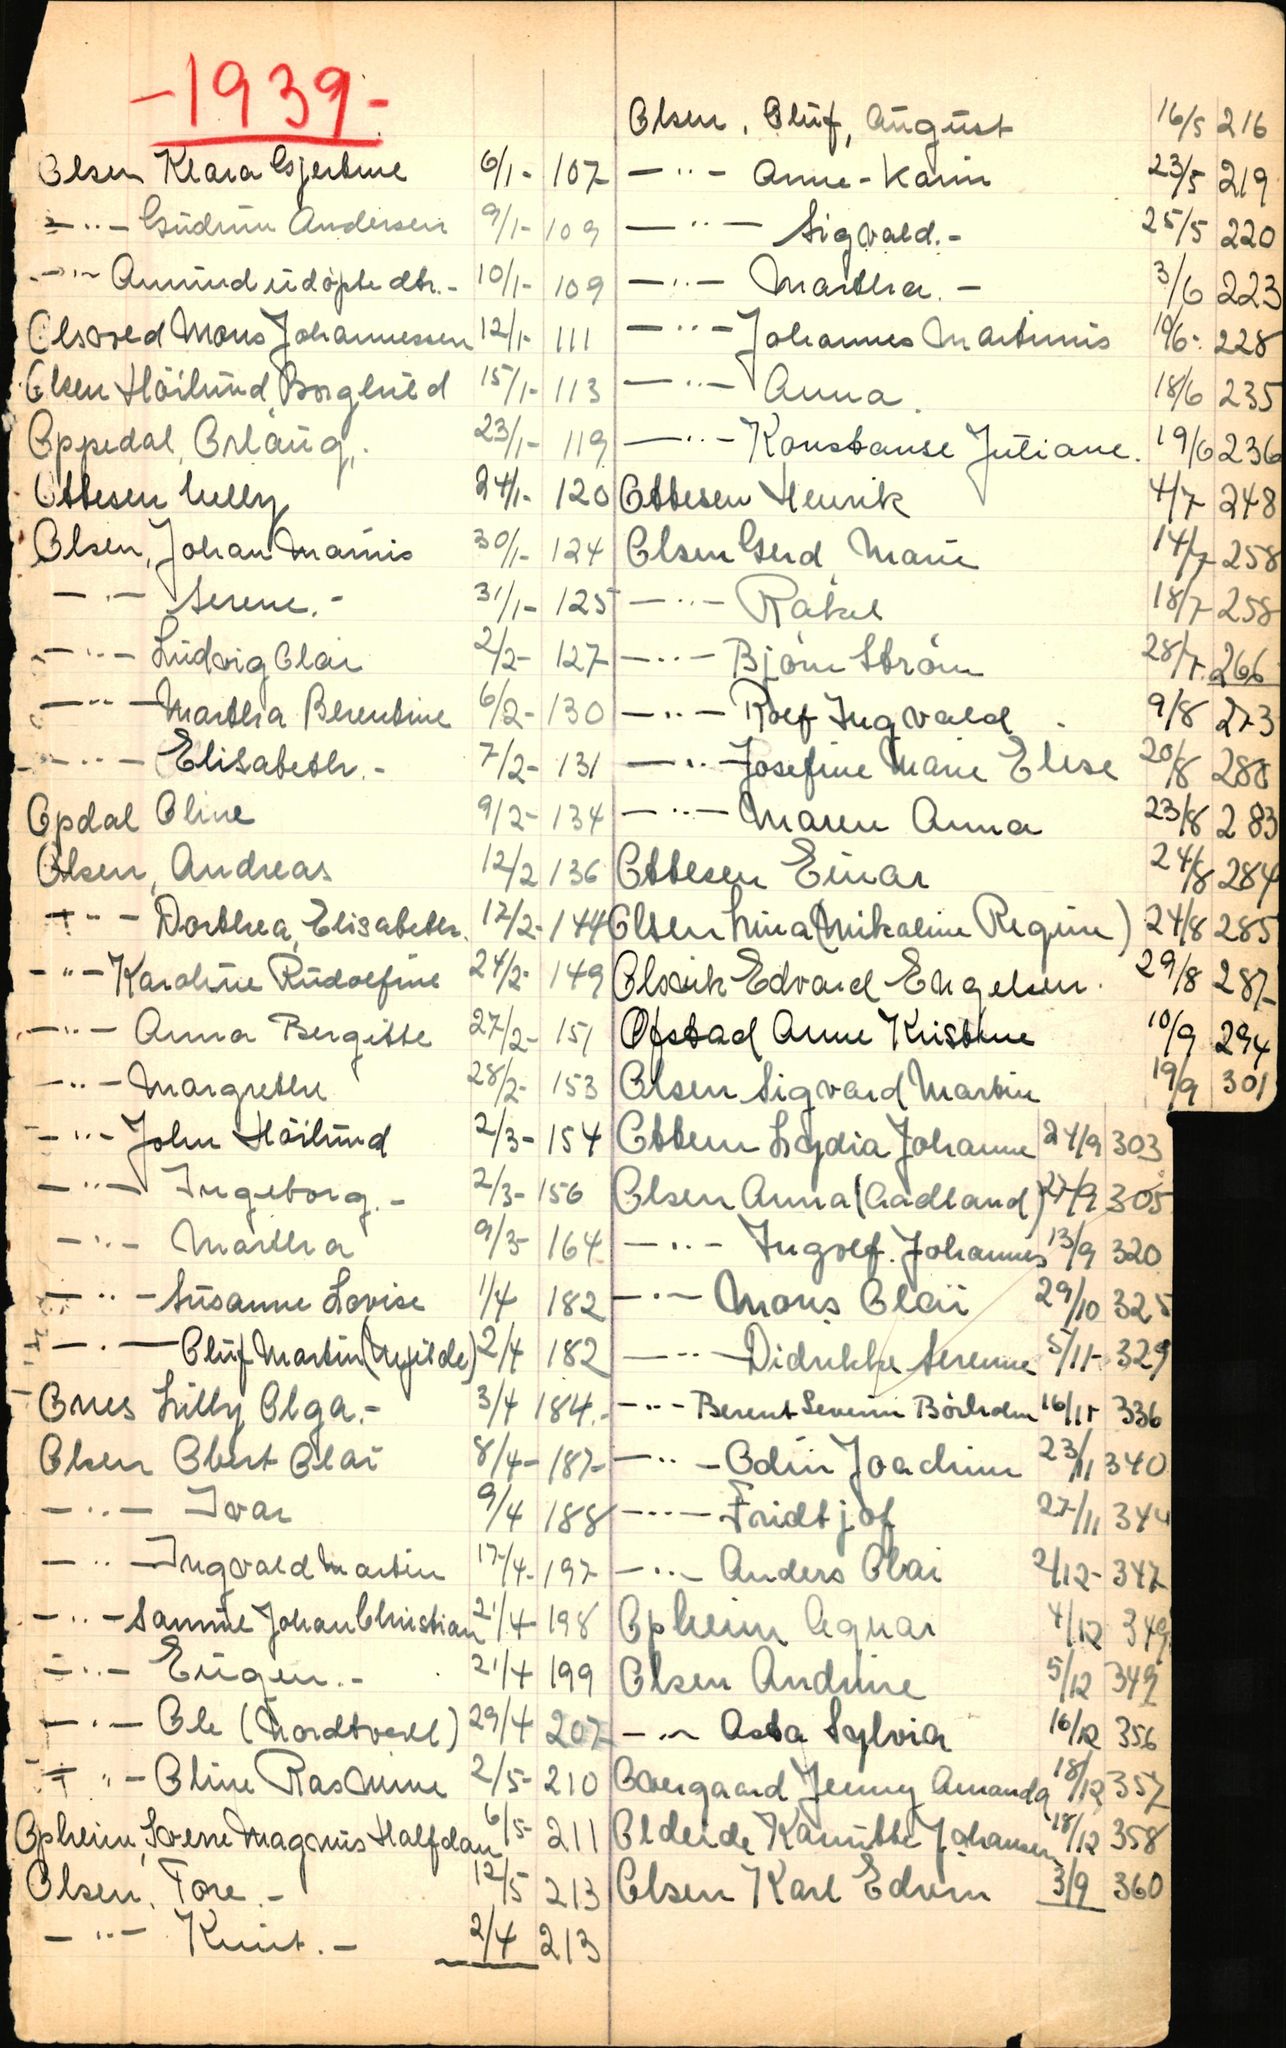 -1939-
Olsen Klara Gjertine 6/1- 107
-"- Gudrun Andersen 9/1- 109
-"- Amund udøpte dtr.- 10/1- 109
Olsvold Mons Johannessen 12/1- 111
Olsen Höilund, Borghild 15/1- 113
Oppedal, Erlaug,. 23/1- 119
Ottesen Nelly 24/1- 120
Olsen, Johan Marius 30/1- 124
-"- Serene.- 31/1- 125
-"- Ludvig Olai 2/2- 127
-"- Martha Berentine 6/2- 130
-"- Elisabeth.- 7/2- 131
Opdal Oline 9/2- 134
Olsen, Andreas 12/2 136
-"- Dorthea, Elisabeth. 17/2- 144
-"- Karoline Rudolfine 24/2- 149
-"- Anna Bergitte 27/2- 151
-"- Margrethe 28/2- 153
-"- John Höilund 2/3- 154
-"- Ingeborg.- 2/3- 156
-"- Martha 9/3- 164
-"- Susanne Lovise 1/4 182
-"- Oluf Martin (Myilde) 2/4 182
Ones Lilly Olga.- 3/4 184.-
Olsen Obert Olai 8/4- 187-
-"- Ivar 9/4 188
-"- Ingvald Martin 17/4- 197
-"- Samuel Johan Christian 21/4- 198
-"- Eugen.- 21/4 199
-"- Ole (Nordtveit) 29/4 207
-"- Oline Rasmine 2/5- 210
Opheim, Sverre Magnus Halfdan 6/5- 211
Olsen, Tore.- 12/5 213
-"- Knut.- 2/4 213
Olsen, Oluf, August 16/5 216
-"- Anne-Karin 23/5 219
-"- Sigvald.- 25/5 220
-"- Martha.- 3/6 223
-"- Johannes Martinus 10/6- 228
-"- Anna. 18/6 235
-"- Konstanse Juliane. 19/6 236
Ottesen Henrik 4/7 248
Olsen Gerd Marie 14/7 258
-"- Rakel 18/7 258
-"- Bjørn Strøm 28/7. 266
-"- Rolf Ingvald 9/8 273
-"- Josefine Marie Elise 20/8 280
-"- Maren Anna 23/8 283
Ottesen Einar 24/8 284
Olsen Lina (Mikaline Regine) 24/8 285
Olsvik Edvard Engelsen. 29/8 287
Ofstad Anne Kristine 10/9 294
Olsen Sigvard Martin 19/9 301
Ottesen Lydia Johanne 24/9 303
Olsen Anna (Aadland) 27/9 305
-"- Ingolf. Johannes 13/9 320
-"- Mons Olai 29/10 325
-"- Didrikke Serenne 5/11- 329
-"- Berent Severin Börholm 16/11 336
-"- Odin Joachim 23/11 340
-"- Fridtjof 27/11 344
-"- Anders Olai 2/12- 347
Opheim Agnar 4/12 349
Olsen Andrine 5/12 349
-"- Asta Sylvia 16/12 356
Overgaard Jenny Amanda 18/12 357
Oldeide Kamitte Johansen 18/12 358
Olsen Karl Edvin 3/9 360